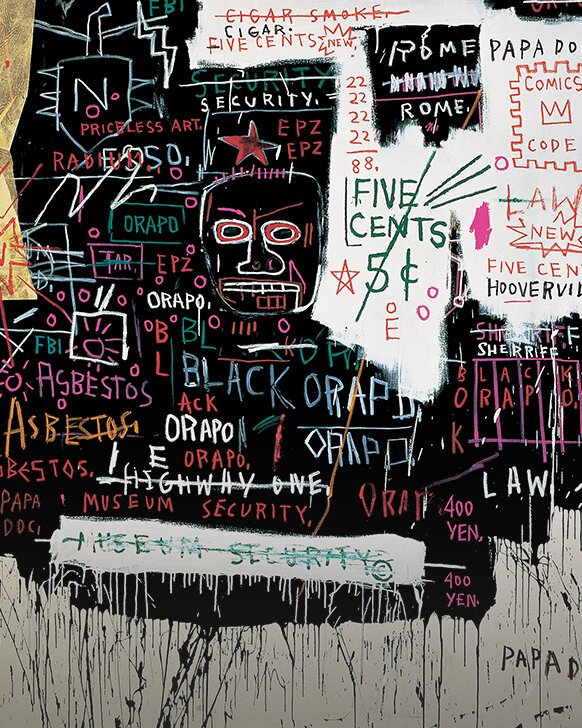 FBI
CIGAR SMOKE.
CIGAR.
FIVE CENTS
NEW.
ROME
PAPA DO
N
SECURITY
SECURITY.
22
22
22
22
88.
ROME.
COMICS
CODE
PRICELESS ART.
EPZ
EPZ
FIVE
CENTS
5¢
LAW
NEWS
ORAPO
TAR.
EPZ
FIVE CEN
HOOVERVIL
ORAPO.
O
E
FBI
B
L
BL
SHERRIFF
SHERRIFF.
ASBESTOS
BLACK
ORAPO
BLACK
ORAP
O
K
ACK
ASBESTOS.
ORAPO
ORAPO
BESTOS.
ORAPO.
HIGHWAY ONE.
LAW
PAPA
DOC,
MUSEUM SECURITY.
ORAP
400
YEN.
MUSEUM SECURITY©
400
YEN.
PAPA D